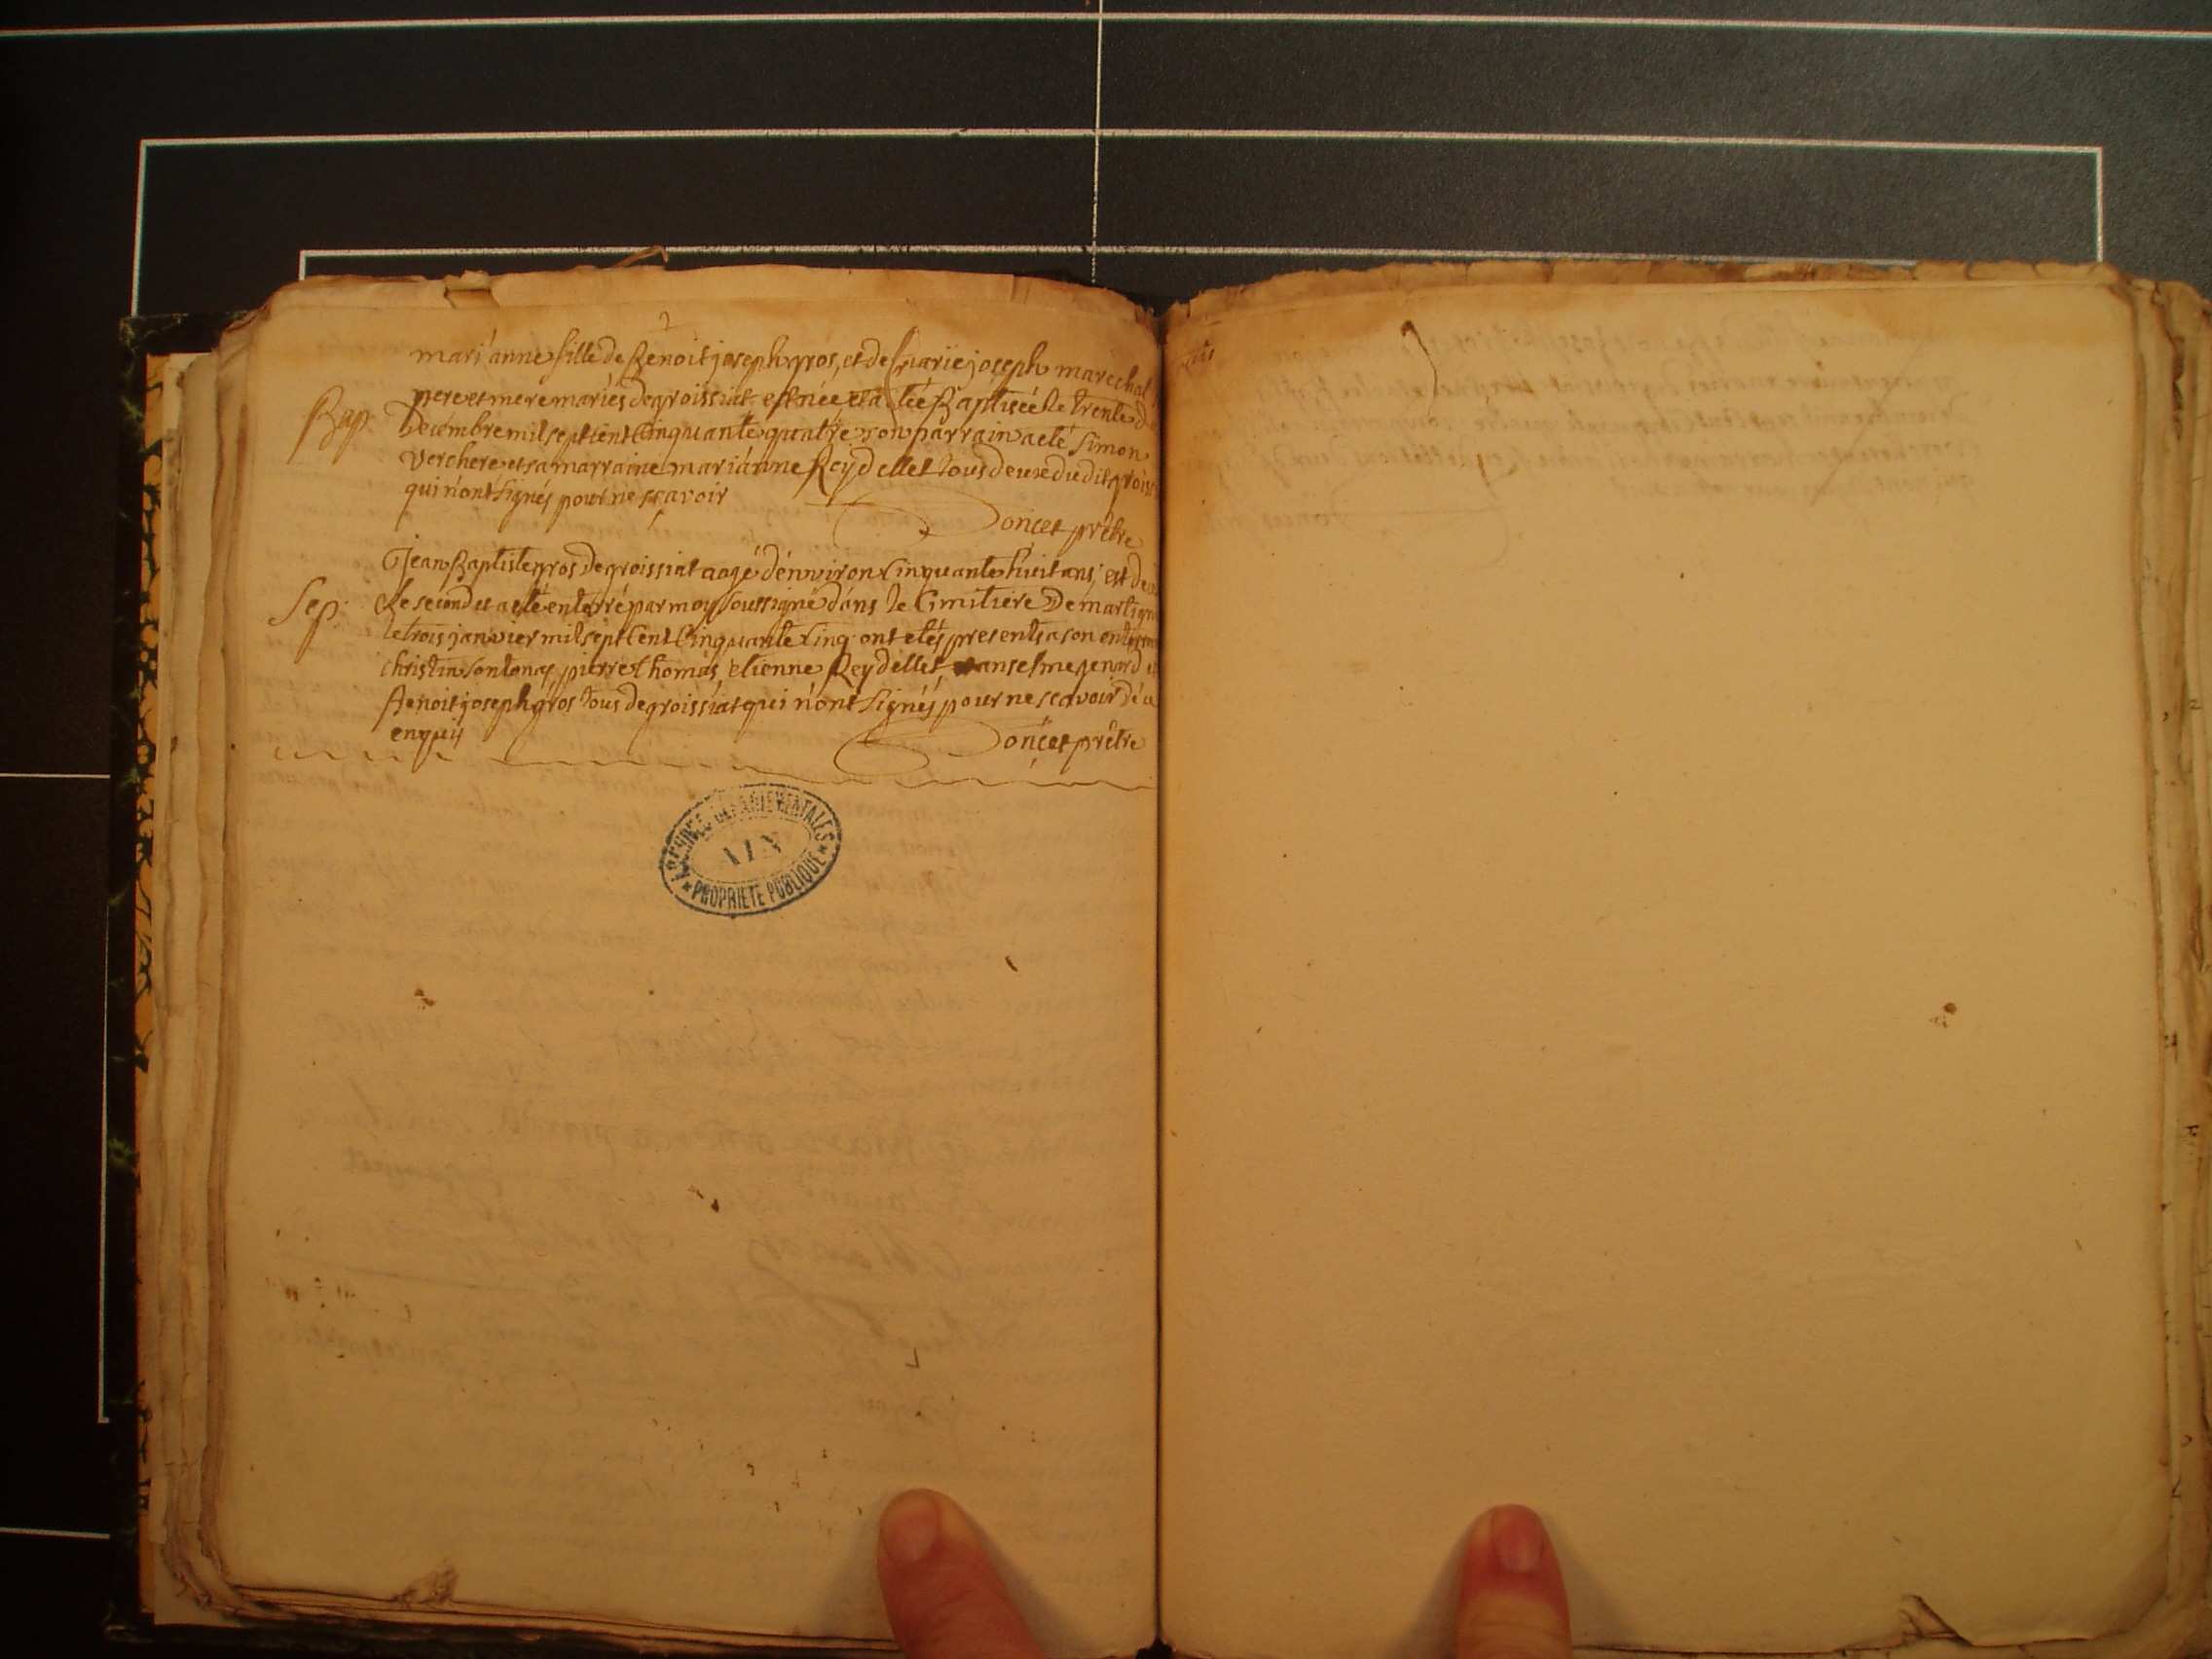 2
mari'anne fille de Benoit joseph gros, et de Marie joseph marechal
pere et mere mariés de groissiat est née et a été Baptisée le trente de
Bap:
Decembre mil sept cent Cinquante quatre son parrain a eté Simon
Verchere et sa marraine mari'anne Reydellet tous deux dudit groiss
qui n'ont signés pour ne sçavoir
Doncet prêtre
Jean Baptiste gros de groissiat aagé d'environ Cinquante huit ans, est
Sep:
le second et a eté enterré par moy soussigné dans le Cimitiere De martign
le trois janvier mil sept Cent Cinquante Cinq. ont etés presents a son
christin pierre thomas, etienne Reydellet, anselme penard
Benoit joseph gros tous de groissiat qui n'ont signés pour ne scavoir de ce
enquis
Doncet prêtre
ARCHIVES DEPARTEMENTALES
AIN
* PROPRIETE PUBLIQUE *